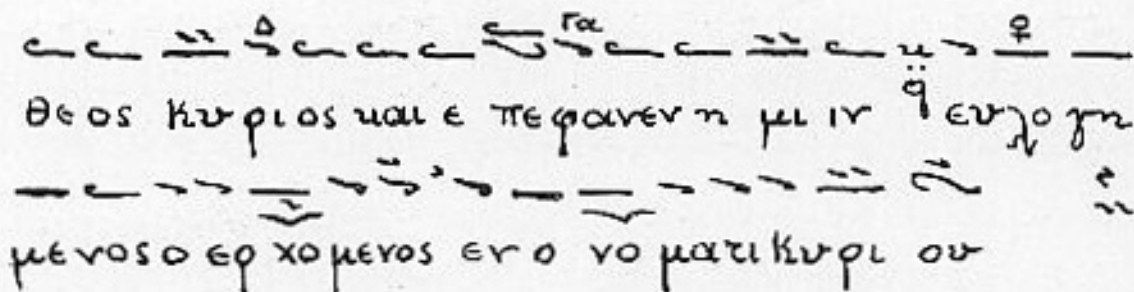 θεος κυριος και ε πεφανεν η μι ιν ευλο γη
μενος ο ερ χομενος εν ο νο ματι κυρι ου